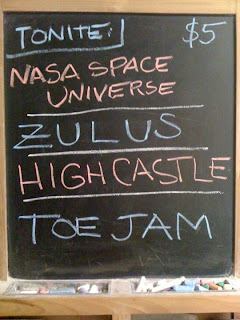 TONITE: $5
NASA SPACE
UNIVERSE
ZULUS
HIGH CASTLE
TOE JAM